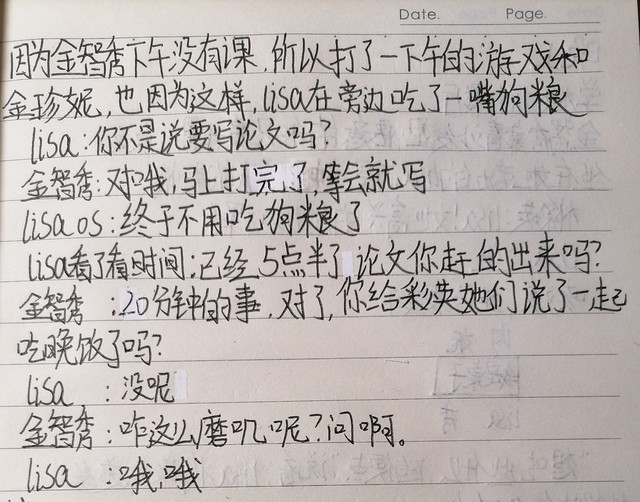 Date. Page.
因为金智秀下午没有课，所以打了一下午的游戏和
金珍妮，也因为这样，lisa在旁边吃了一嘴狗粮
lisa：你不是说要写论文吗？
金智秀：对哦，马上打完了，等会就写
lisa os：终于不用吃狗粮了
lisa看了看时间：已经5点半了 论文你赶的出来吗？
金智秀：20分钟的事，对了，你给彩英她们说了一起
吃晚饭了吗？
lisa：没呢
金智秀：咋这么磨叽呢？问啊。
lisa：哦，哦